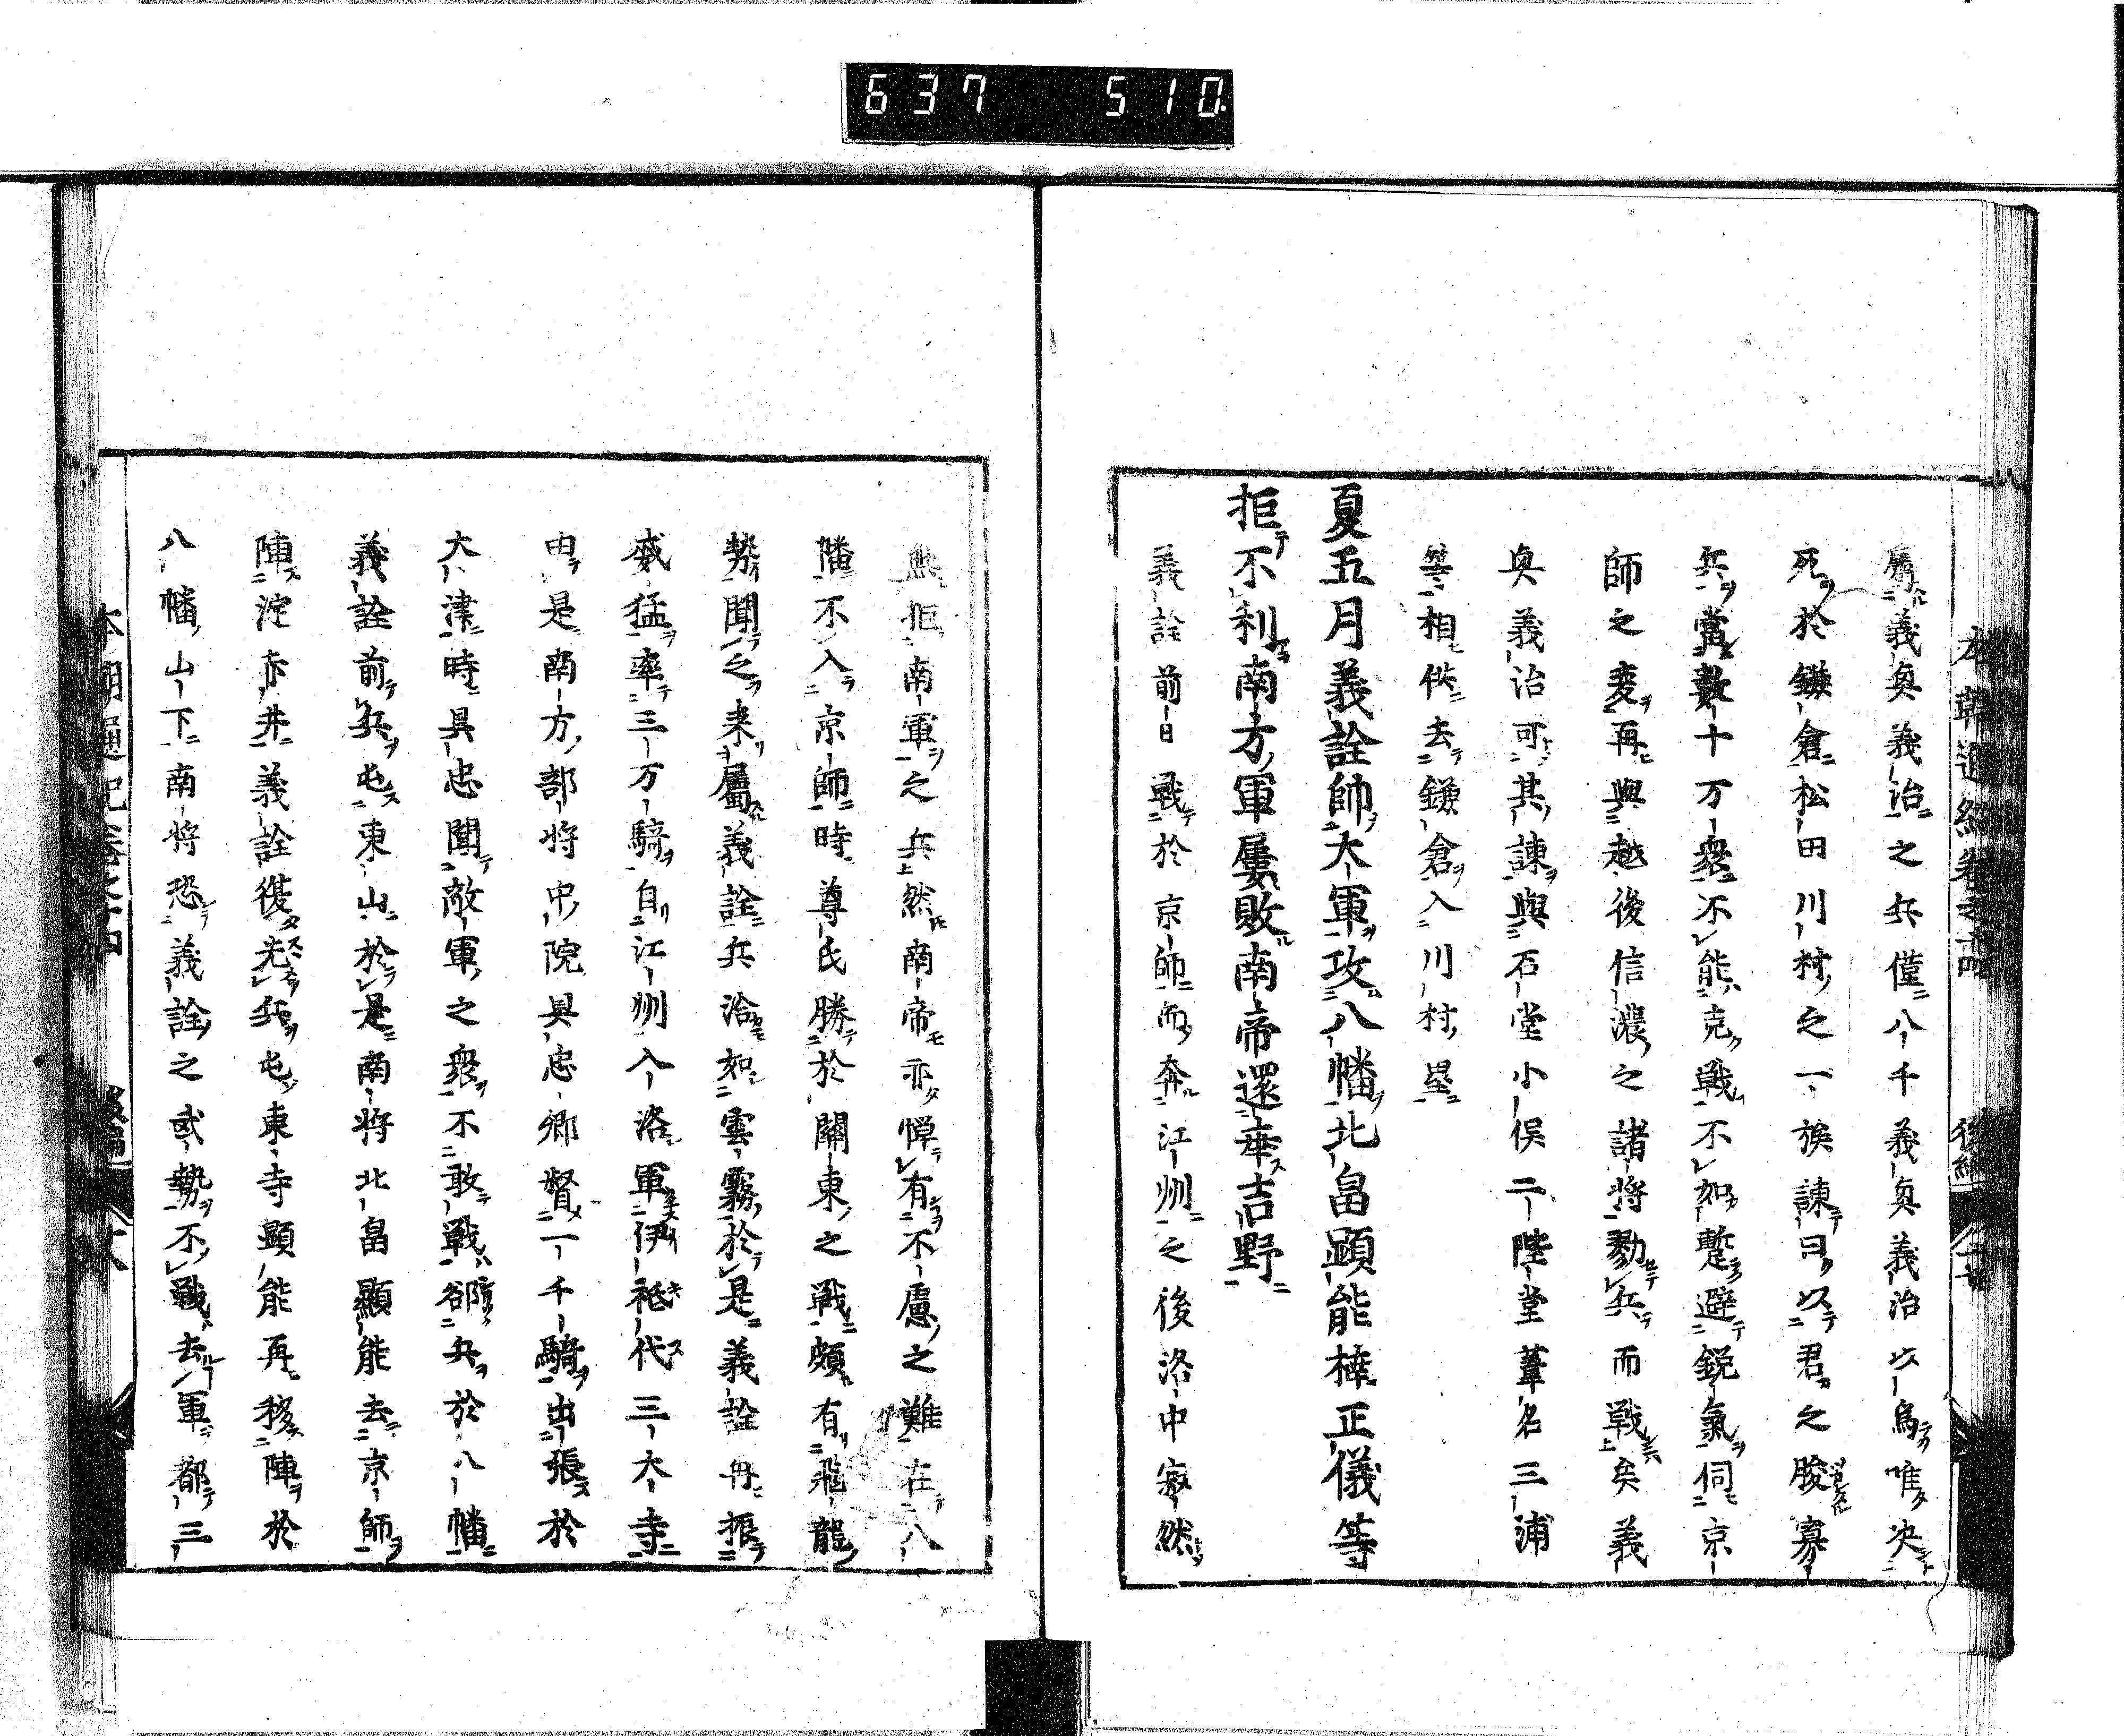 637 510
屬義奐義治之兵僅八千義奐義治以為唯決
死於鎌倉松田川村之一族諫曰以君之罷寡
兵當數十万衆不能克戰不如蹔避鋭氣伺京
師之変再與越後信濃之諸将勠兵而戰矣義
奐義治可其諫與石堂小俣二階堂葦名三浦
等相供去鎌倉入川村壘
夏五月義詮帥大軍攻八幡北畠顕能楠正儀等
拒不利南方軍屢敗南帝還奉吉野
義詮前日戰於京師而奔江州之後洛中寂然
無拒南軍之兵然南帝亦憚有不慮之難在八
幡不入京師時尊氏勝於關東之戰頗有飛龍
勢聞之来屬義詮兵洽如雲霧於是義詮再振
威猛率三万騎自江州入洛軍伊祗代三大寺
由是南方部将中院具忠郷督一千騎出張於
大津時具忠聞敵軍之衆不敢戰郤兵於八幡
義詮前兵屯東山於是南将北畠顯能去京師
陣淀赤井義詮復先兵屯東寺顕能再移陣於
八幡山下南将恐義詮之威勢不戰去軍都三
本朝通紀巻之十四 後編